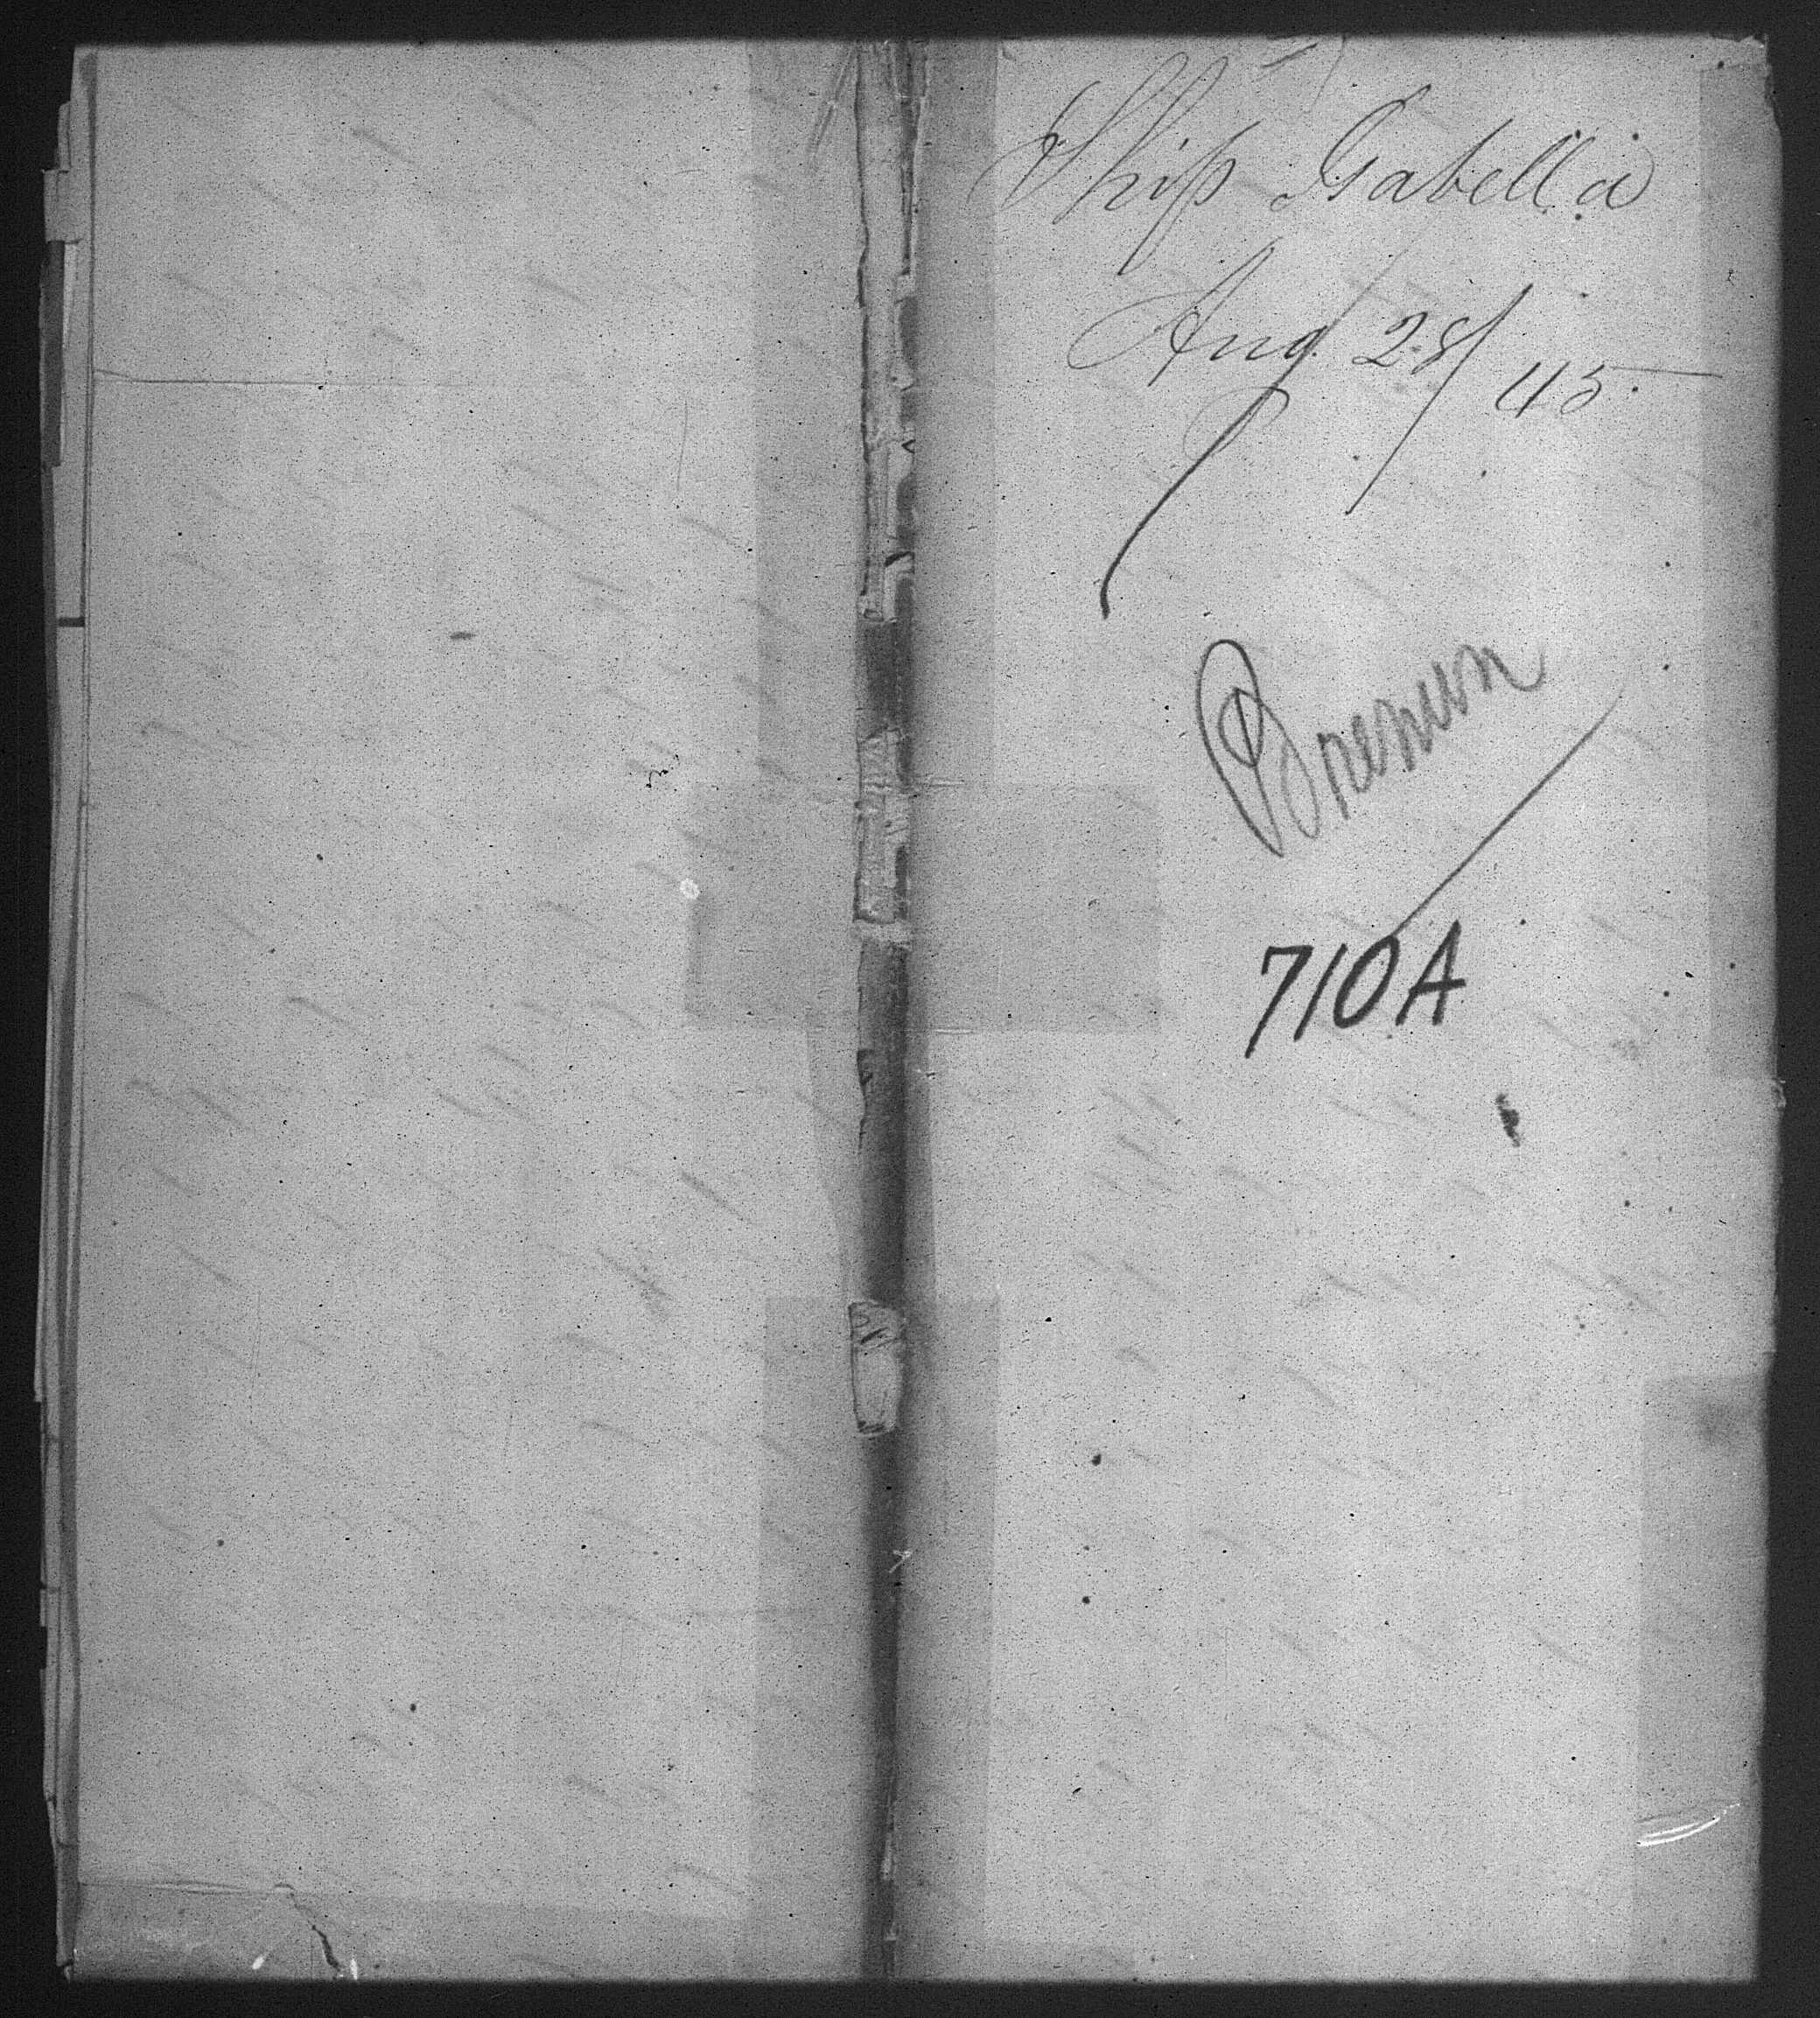 Ship Isabella
Aug 28/45.
Bremen
710A